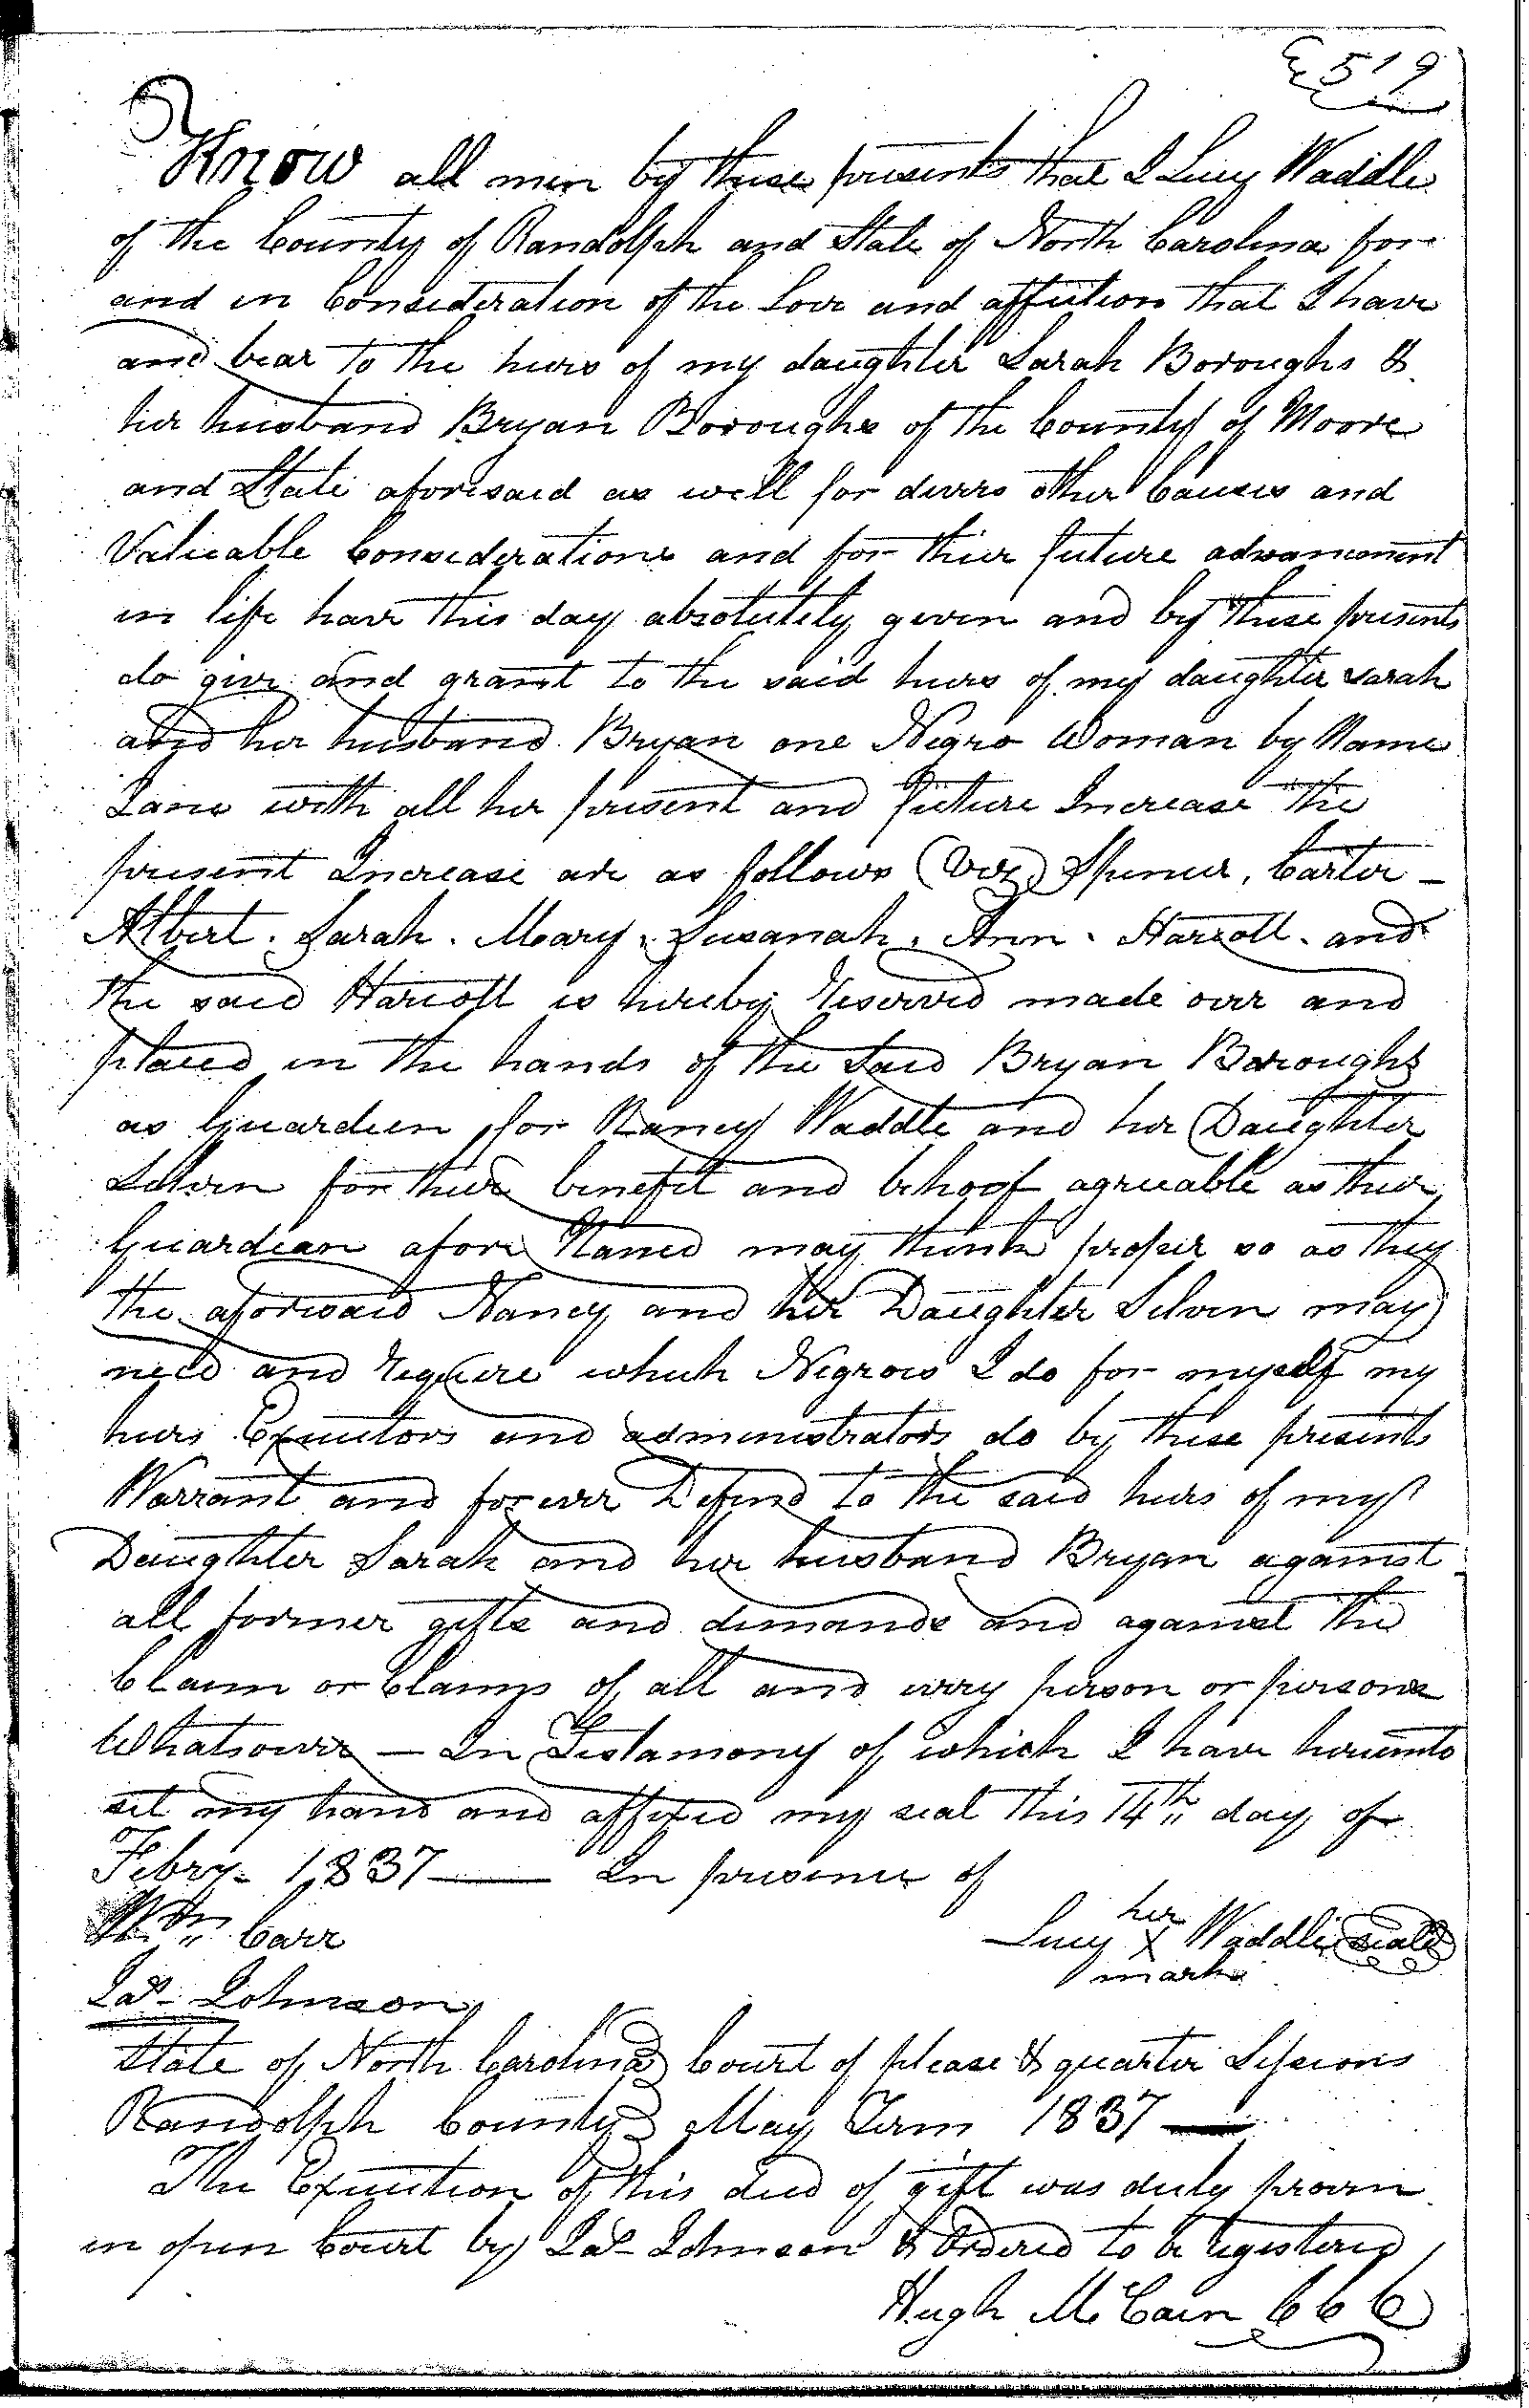 519
Know all men by these presents that I Lucy Waddle
of the County of Randolph and State of North Carolina for
and in Consideration of the Love and affection that I have
and bear to the heirs of my daughter Sarah Boroughs &
her husband Bryan Boroughs of the County of Moore
and State aforesaid as well for divers other Causes and
Valuable Considerations and for their future advancement
in life have this day absolutely given and by these presents
do give and grant to the said heirs of my daughter Sarah
and her husband Bryan one Negro Woman by Name
Jane with all her present and future Increase the
present Increase are as follows (viz) Spencer, Carter –
Albert. Sarah. Mary. Susanah. Ann. Harriott. and
the said Harriott is hereby reserved made over and
placed in the hands of the said Bryan Boroughs
as Guardien for Nancy Waddle and her Daughter
Selven for their benefit and behoof agreeable as their
Guardean afore Named may think proper so as they
the aforesaid Nancy and her Daughter Selven may
need and require which Negroes I do for myself my
heirs Executors and administrators do by these presents
Warrant and forever Defend to the said heirs of my
Daughter Sarah and her husband Bryan against
all former gifts and demands and against the
Claim or Claims of all and every person or persons
Whatsoever — In Testamony of which I have hereunto
set my hand and affixed my seal this 14th day of
Febry. 1837 — In presence of
Wm Carr
her
Lucy X Waddle seal
mark
Jas. Johnson
State of North Carolina } Court of please & quarter Sessions
Randolph County } May Term 1837 —
The Execution of this deed of gift was duly proven
in open Court by Jas. Johnson & Ordered to be registered
Hugh McCain C C C